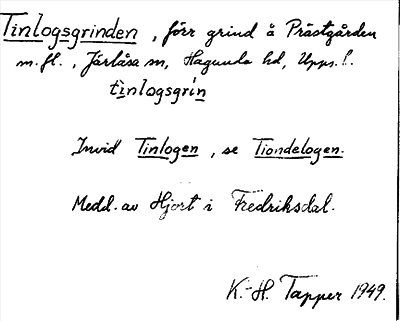 Tinlogsgrinden, förr grind å Prästgården
m.fl., Järlåsa sn, Hagunda hd, Upps.l.
tìnlogsgrín
Invid Tinlogen, se Tiondelogen.
Medd. av Hjort i Fredriksdal.
K.-H. Tapper 1949.